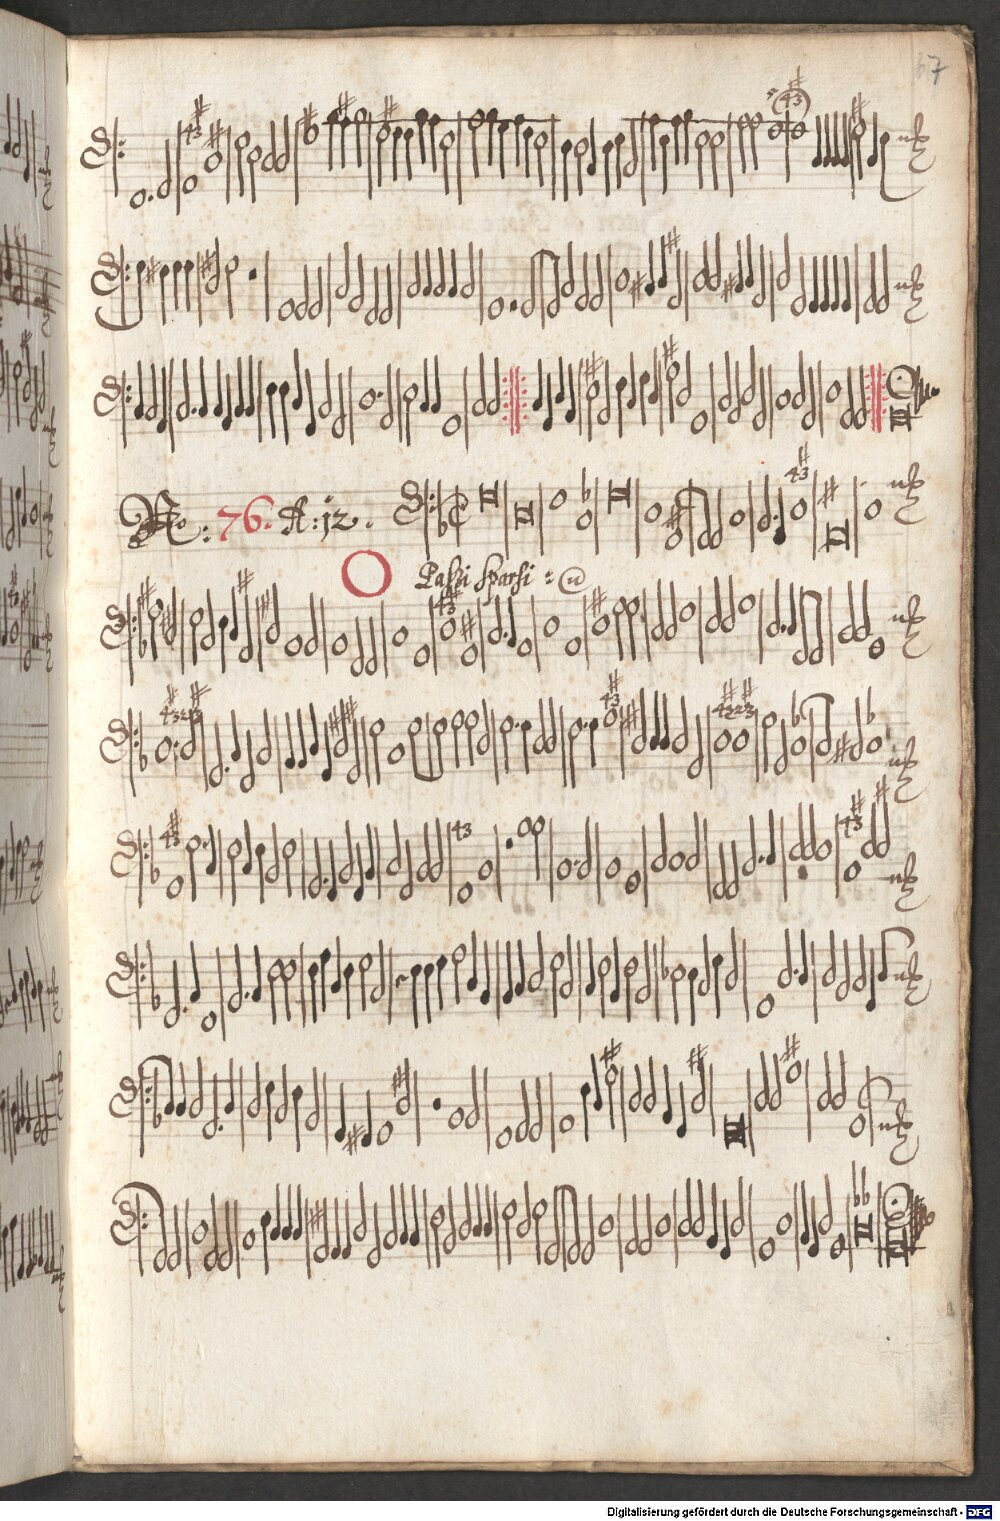 67
No: 76. A: 12.
Passi sparsi :
Digitalisierung gefördert durch die Deutsche Forschungsgemeinschaft - DFG